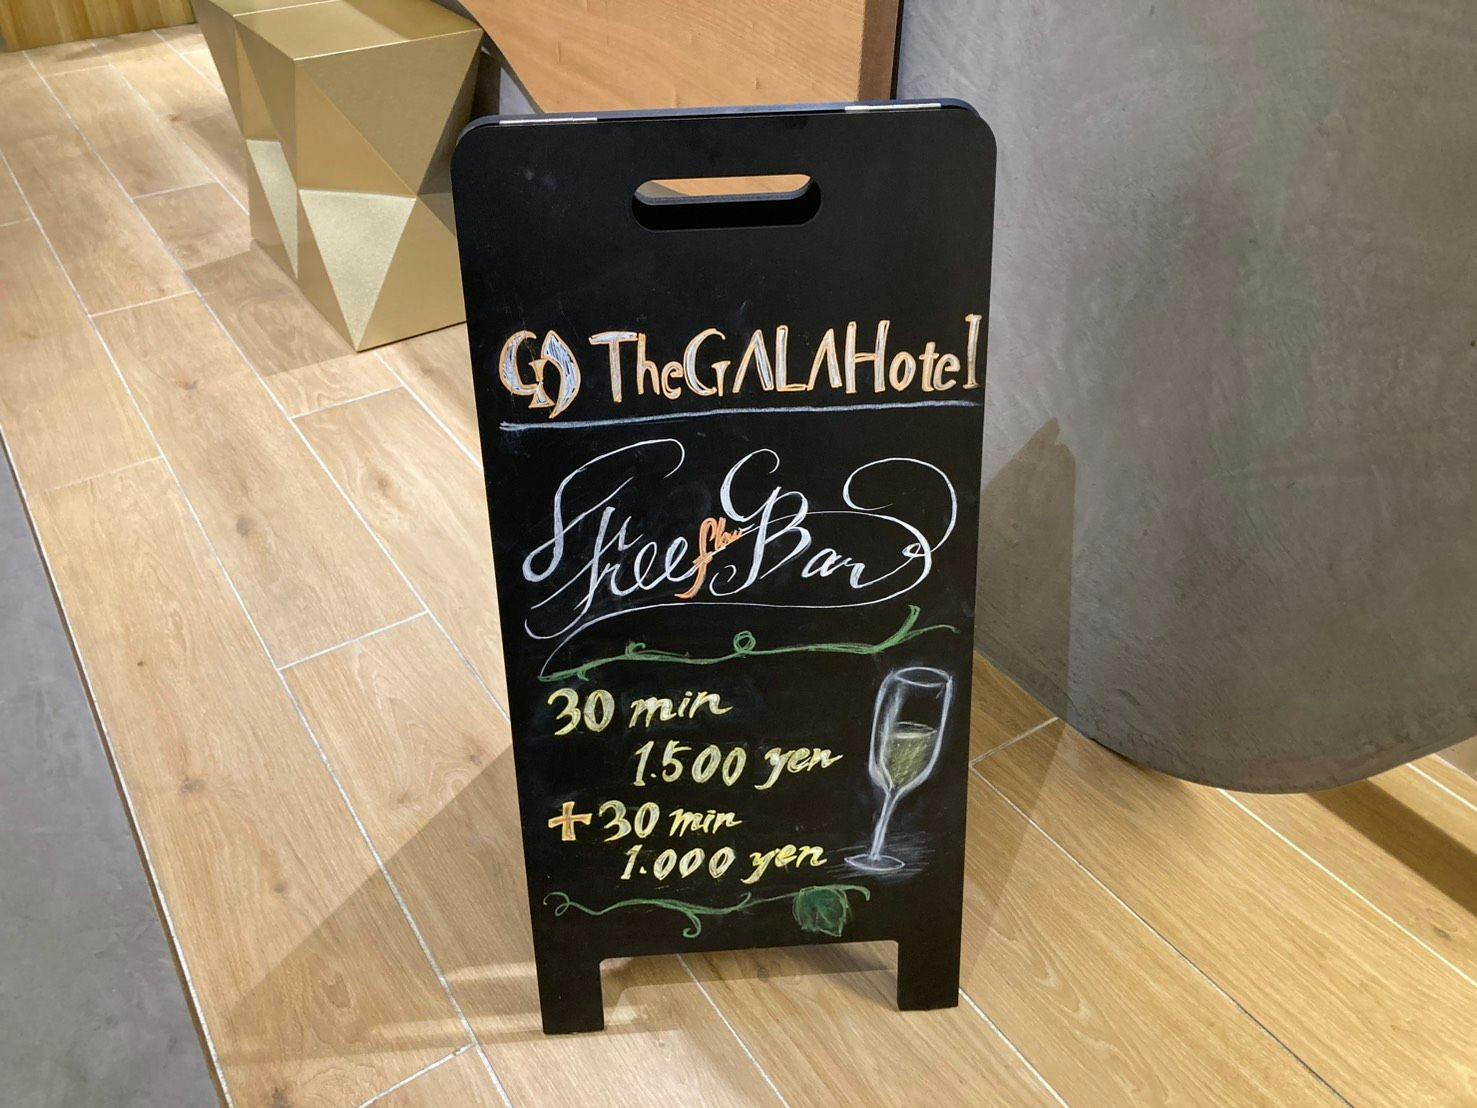 The GALA Hotel
Free flow Bar
30 min
1.500 yen
+30 min
1.000 yen